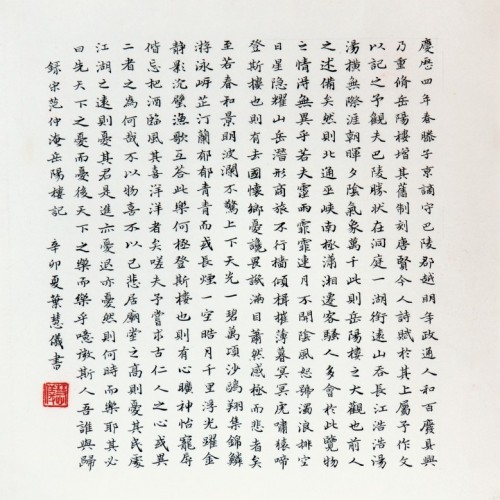 慶曆四年春滕子京謫守巴陵郡越明年政通人和百廢具興
乃重脩岳陽樓增其舊制刻唐賢今人詩賦於其上屬予作文
以記之予觀夫巴陵勝狀在洞庭一湖銜遠山吞長江浩浩湯
湯橫無際涯朝暉夕陰氣象萬千此則岳陽樓之大觀也前人
之述備矣然則北通巫峽南極瀟湘遷客騷人多會於此覽物
之情得無異乎若夫霪雨霏霏連月不開陰風怒號濁浪排空
日星隱耀山岳潛形商旅不行檣傾楫摧薄暮冥冥虎嘯猿啼
登斯樓也則有去國懷鄉憂讒畏譏滿目蕭然感極而悲者矣
至若春和景明波瀾不驚上下天光一碧萬頃沙鷗翔集錦鱗
游泳岸芷汀蘭郁郁青青而或長煙一空皓月千里浮光躍金
靜影沉璧漁歌互答此樂何極登斯樓也則有心曠神怡寵辱
偕忘把酒臨風其喜洋洋者矣嗟夫予嘗求古仁人之心或異
二者之為何哉不以物喜不以己悲居廟堂之高則憂其民處
江湖之遠則憂其君是進亦憂退亦憂然則何時而樂耶其必
曰先天下之憂而憂後天下之樂而樂乎噫微斯人吾誰與歸
錄宋范仲淹岳陽樓記 辛卯夏葉慧儀書